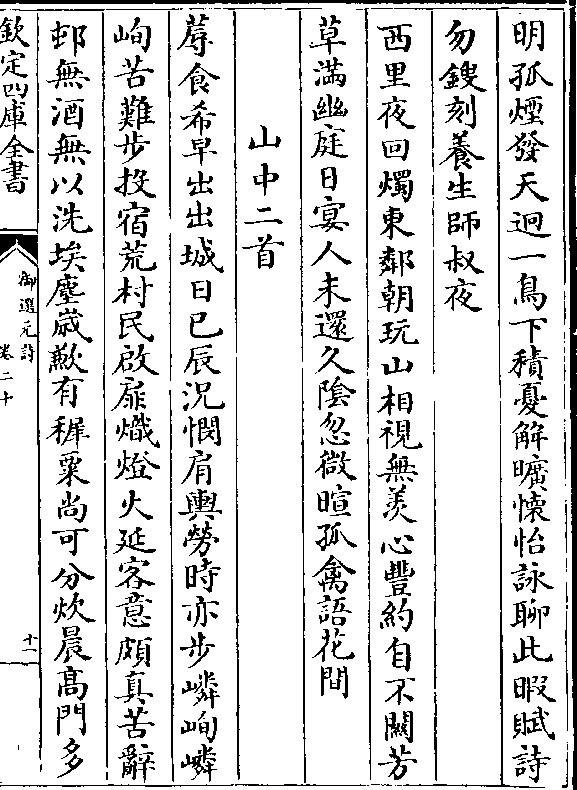 明孤煙發天迥一鳥下積憂解曠懷怡詠聊此暇賦詩
勿鎪刻養生師叔夜
西里夜回燭東鄰朝玩山相視無羨心豐約自不關芳
草滿幽庭日宴人未還久陰忽微暄孤禽語花間
山中二首
蓐食希早出出城日已辰況憫肩輿勞時亦步嶙峋嶙
峋苦難步投宿荒村民啟扉熾燈火延客意頗真苦辭
邨無酒無以洗埃塵歲歉有稺粟尚可分炊晨高門多
欽定四庫全書
御選元詩
卷二十
十一